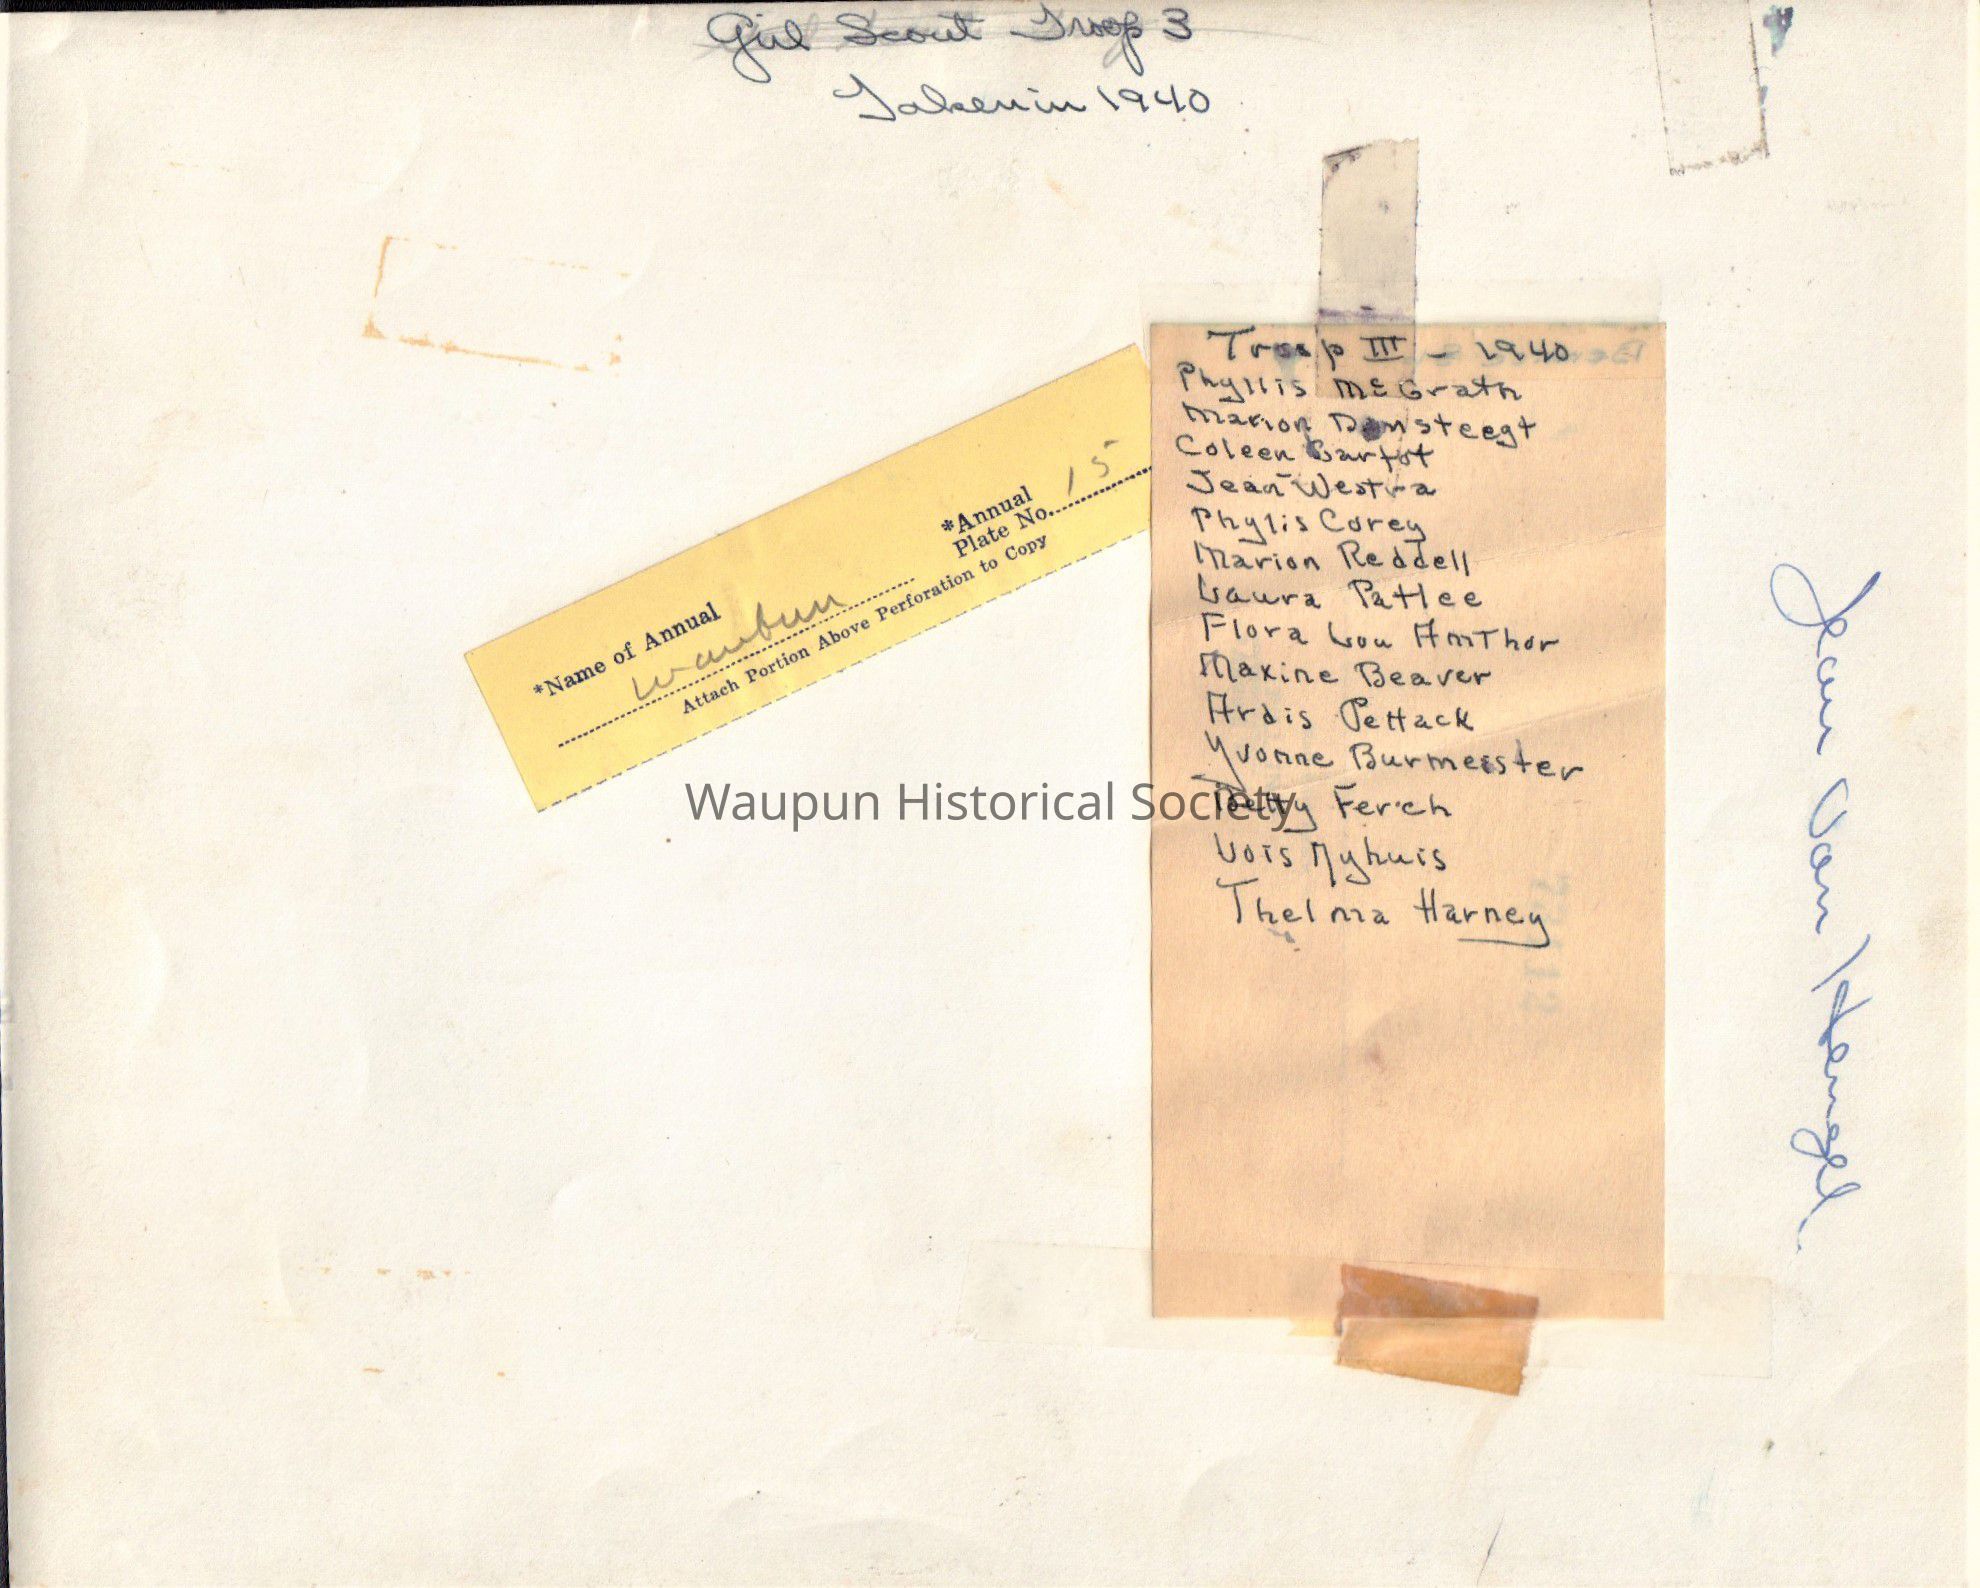 Girl Scout Troop 3
Taken in 1940
Troop III - 1940
Phyllis McGrath
Marion Damsteegt
Coleen Bartot
Jean Westra
Phylis Corey
Marion Reddell
Laura Patlee
Flora Lou AmThor
Maxine Beaver
Ardis Pettack
Yvonne Burmeister
Betty Ferch
Lois Nyhuis
Thelma Harney
*Name of Annual
Waupun
*Annual
Plate No. 15
Attach Portion Above Perforation to Copy
Waupun Historical Society
Jean Van Hengel